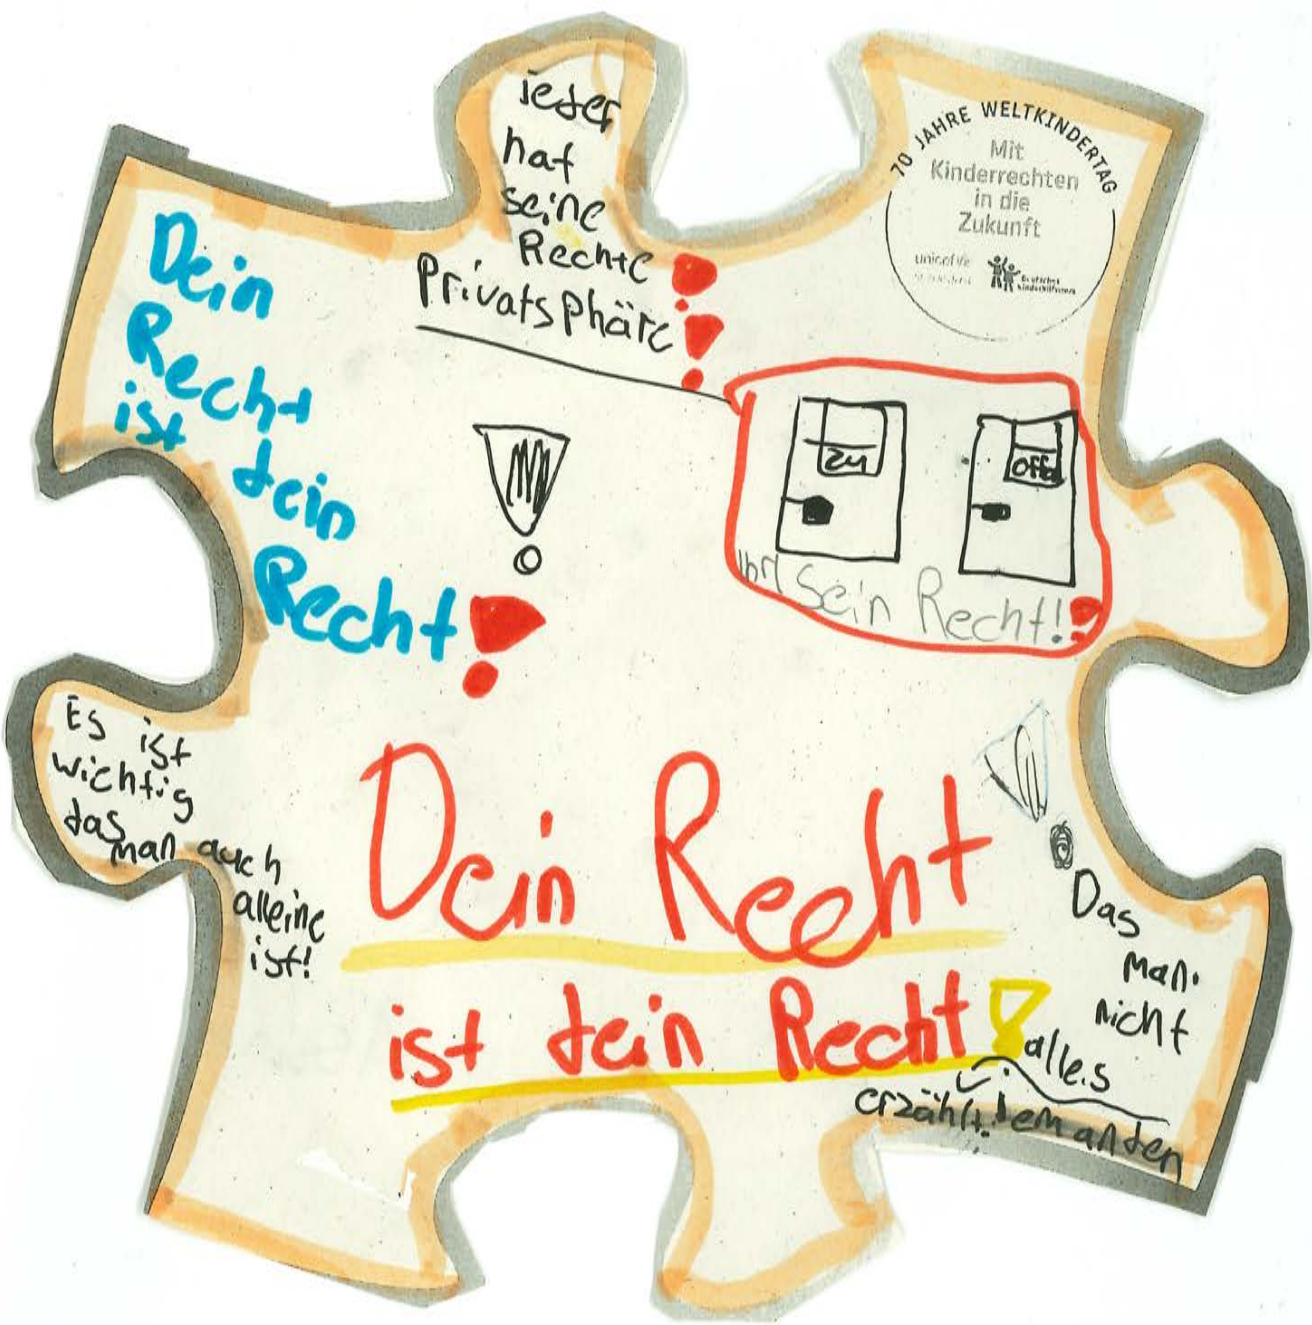 jeder
hat
seine
Rechte
Privatsphäre
70 JAHRE WELTKINDERTAG
Mit
Kinderrechten
in die
Zukunft
unicef
Deutsches
Kinderhilfswerk
Dein
Recht
ist dein
Recht
zu
offe
Ihr/Sein Recht!
Es ist
wichtig
das man auch
alleine
ist!
Dein Recht
ist dein Recht
Das
man
nicht
alles
jemanden
erzählt.